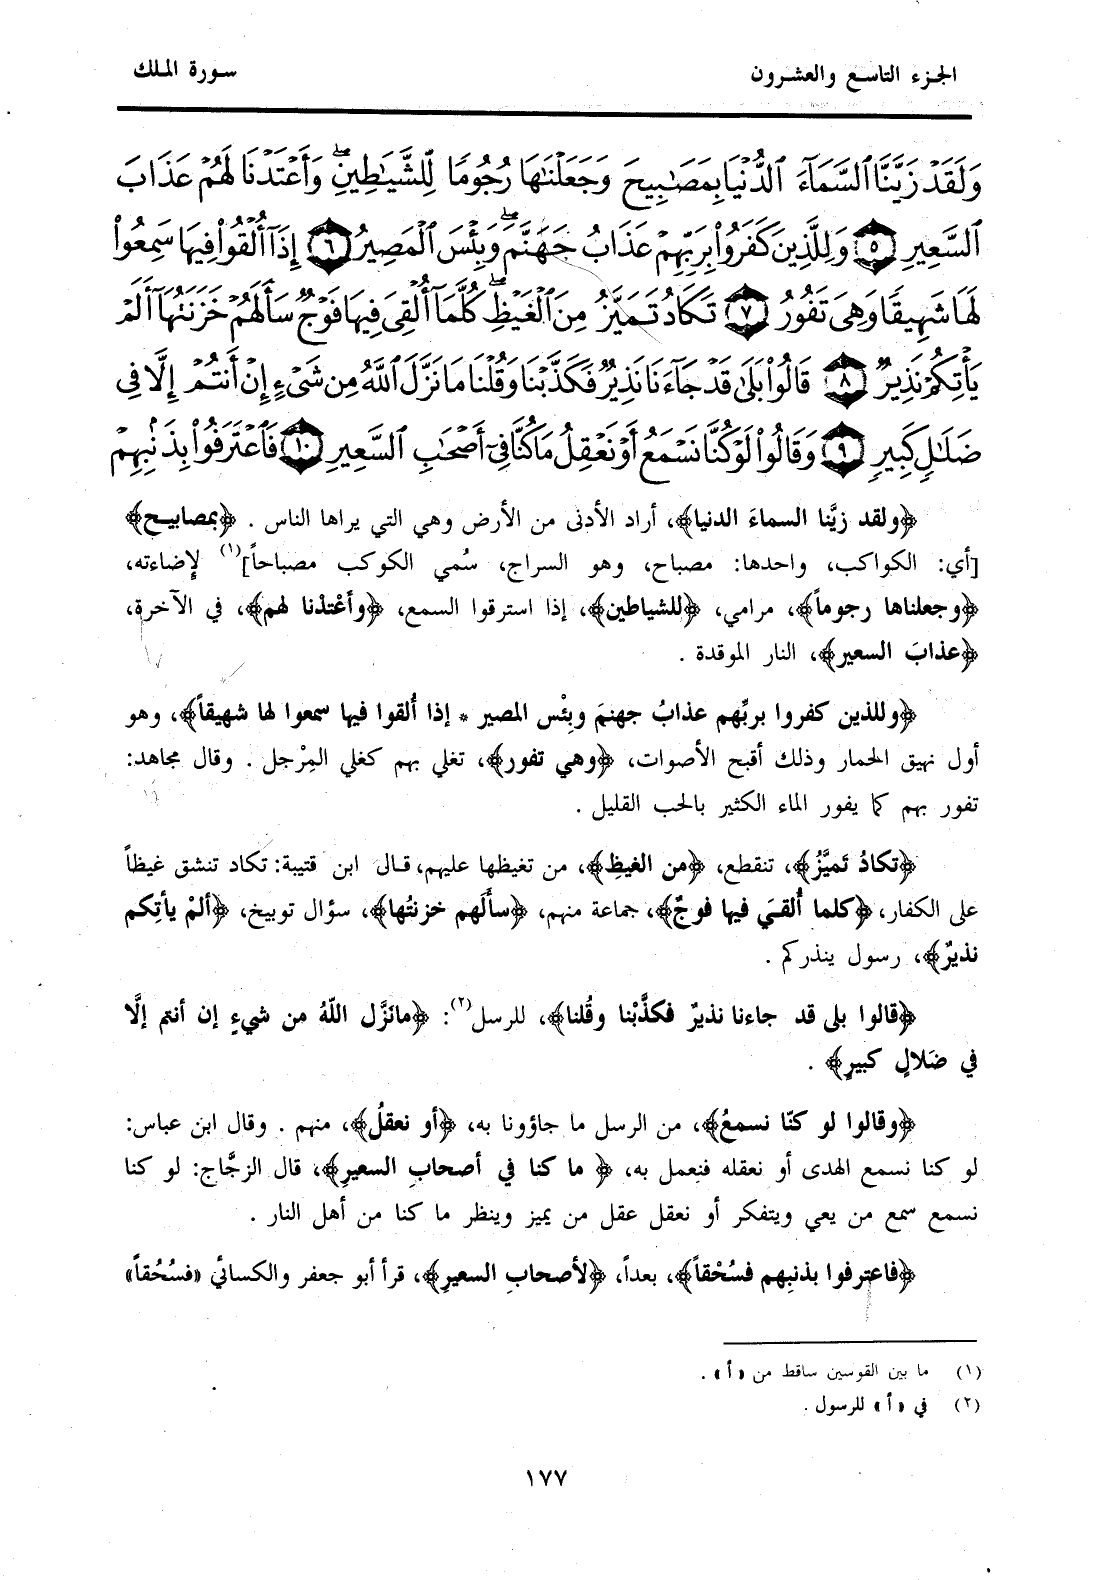 الجزء التاسع والعشرون
سورة الملك
وَلَقَدْ زَيَّنَّا ٱلسَّمَآءَ ٱلدُّنْيَا بِمَصَٰبِيحَ وَجَعَلْنَٰهَا رُجُومًا لِّلشَّيَٰطِينِ ۖ وَأَعْتَدْنَا لَهُمْ عَذَابَ
ٱلسَّعِيرِ ٥ وَلِلَّذِينَ كَفَرُوا۟ بِرَبِّهِمْ عَذَابُ جَهَنَّمَ ۖ وَبِئْسَ ٱلْمَصِيرُ ٦ إِذَآ أُلْقُوا۟ فِيهَا سَمِعُوا۟
لَهَا شَهِيقًا وَهِىَ تَفُورُ ٧ تَكَادُ تَمَيَّزُ مِنَ ٱلْغَيْظِ ۖ كُلَّمَآ أُلْقِىَ فِيهَا فَوْجٌ سَأَلَهُمْ خَزَنَتُهَآ أَلَمْ
يَأْتِكُمْ نَذِيرٌ ٨ قَالُوا۟ بَلَىٰ قَدْ جَآءَنَا نَذِيرٌ فَكَذَّبْنَا وَقُلْنَا مَا نَزَّلَ ٱللَّهُ مِن شَىْءٍ إِنْ أَنتُمْ إِلَّا فِى
ضَلَٰلٍ كَبِيرٍ ٩ وَقَالُوا۟ لَوْ كُنَّا نَسْمَعُ أَوْ نَعْقِلُ مَا كُنَّا فِىٓ أَصْحَٰبِ ٱلسَّعِيرِ ١٠ فَٱعْتَرَفُوا۟ بِذَنۢبِهِمْ
﴿ولقد زيَّنا السماءَ الدنيا﴾، أراد الأدنى من الأرض وهي التي يراها الناس . ﴿بمصابيح﴾
[أي: الكواكب، واحدها: مصباح، وهو السراج، سُمي الكوكب مصباحاً](١) لإضاءته،
﴿وجعلناها رجوماً﴾، مرامي، ﴿للشياطين﴾، إذا استرقوا السمع، ﴿وأعْتدْنا لهم﴾، في الآخرة،
﴿عذابَ السعير﴾، النار الموقدة .
﴿وللذين كفروا بربِّهم عذابُ جهنمَ وبِئْس المصير * إذا أُلقوا فيها سمعوا لها شهيقاً﴾، وهو
أول نهيق الحمار وذلك أقبح الأصوات، ﴿وهي تفور﴾، تغلي بهم كغلي المِرْجل . وقال مجاهد:
تفور بهم كما يفور الماء الكثير بالحب القليل .
﴿تكادُ تَميَّزُ﴾، تنقطع، ﴿من الغيظِ﴾، من تغيظها عليهم، قال ابن قتيبة: تكاد تنشق غيظاً
على الكفار، ﴿كلما أُلقيَ فيها فوجٌ﴾، جماعة منهم، ﴿سأَلَهم خزنتُها﴾، سؤال توبيخ، ﴿ألمْ يأتِكم
نذيرٌ﴾، رسول ينذركم .
﴿قالوا بلى قد جاءنا نذيرٌ فكذَّبْنا وقُلنا﴾، للرسل(٢): ﴿مانزَّل اللّهُ من شيءٍ إن أنتم إلَّا
في ضَلالٍ كبيرٍ﴾ .
﴿وقالوا لو كنّا نسمعُ﴾، من الرسل ما جاؤونا به، ﴿أو نعقلُ﴾، منهم . وقال ابن عباس:
لو كنا نسمع الهدى أو نعقله فنعمل به، ﴿ ما كنا في أصحابِ السعيرِ﴾، قال الزجَّاج: لو كنا
نسمع سمع من يعي ويتفكر أو نعقل عقل من يميز وينظر ما كنا من أهل النار .
﴿فاعترفوا بذنبِهم فسُحْقاً﴾، بعداً، ﴿لأصحابِ السعيرِ﴾، قرأ أبو جعفر والكسائي «فسُحُقاً»
(١) ما بين القوسين ساقط من «أ» .
(٢) في «أ» للرسول .
١٧٧